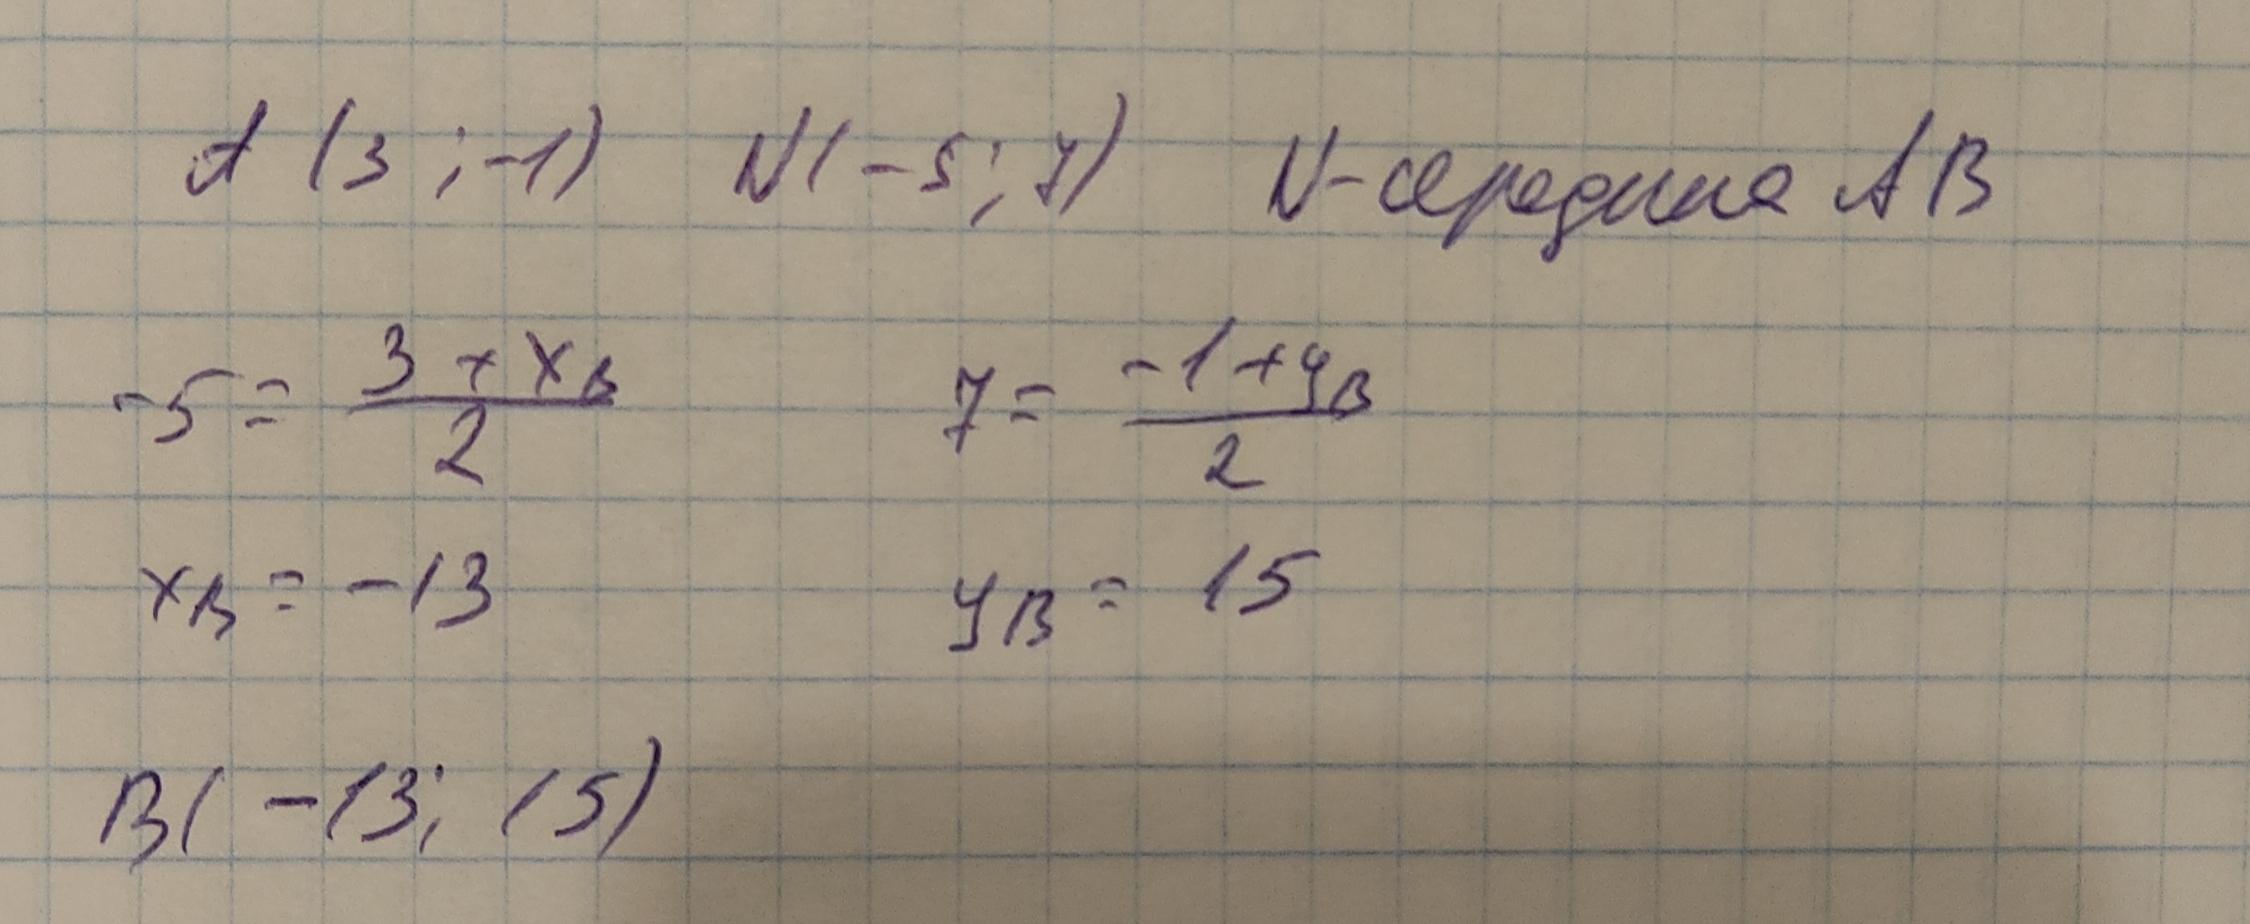 A (3 ; -1) N( -5 ; 7) N-середина AB
-5 = (3 + x_B)/2 7 = (-1 + y_B)/2
x_B = -13 y_B = 15
B( -13; 15)